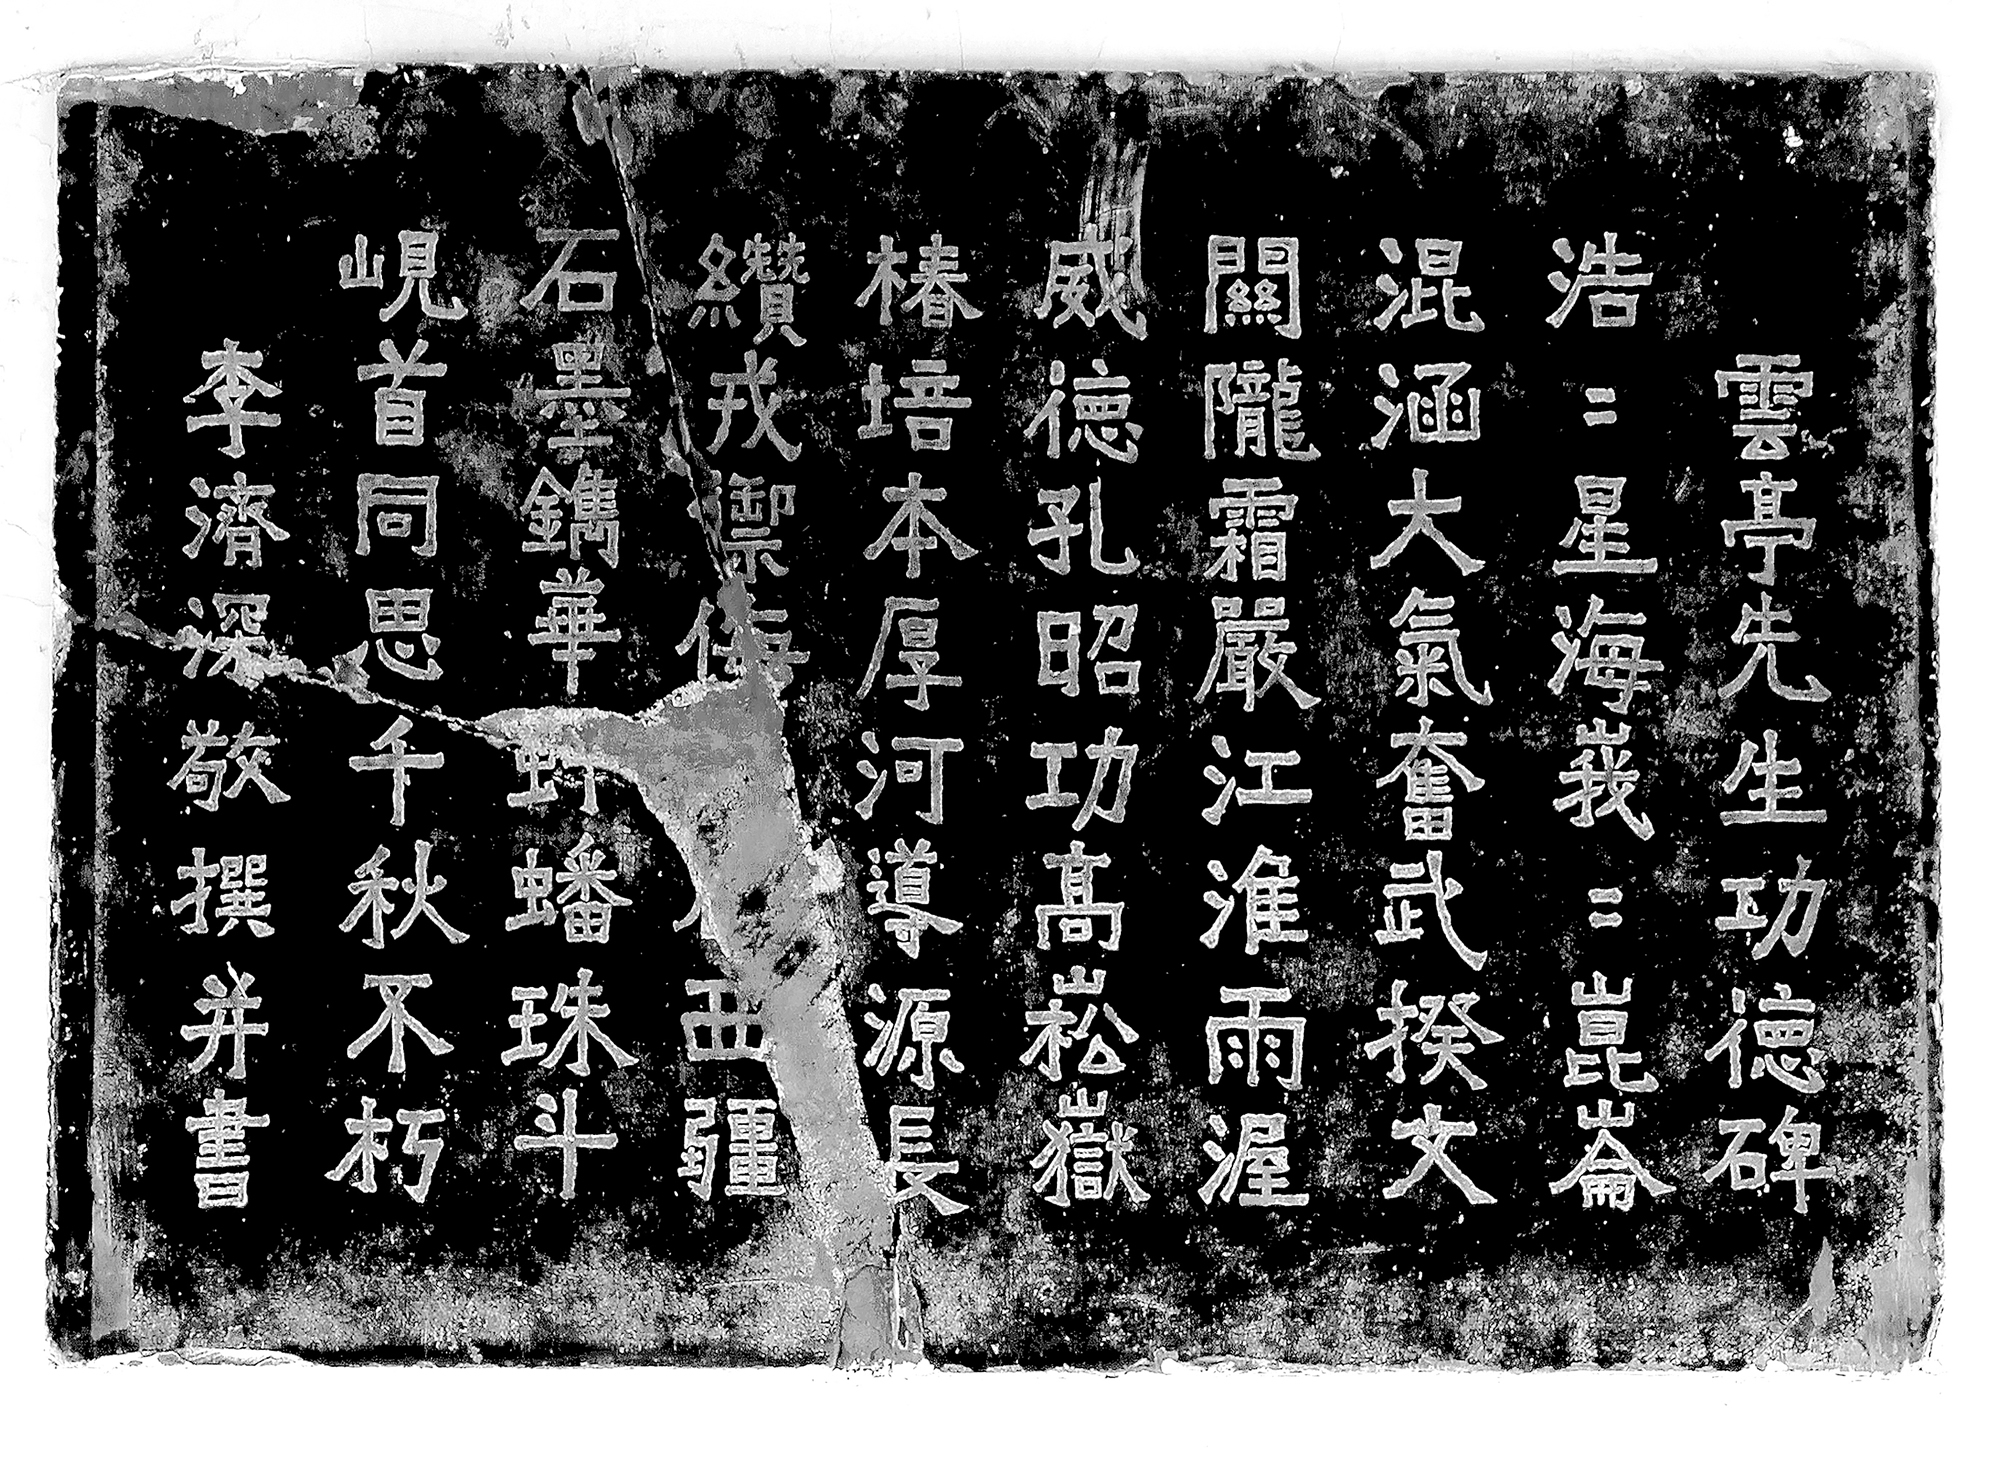 雲亭先生功德碑
浩〻星海峩〻崑崙
混涵大氣奮武揆文
關隴霜嚴江淮雨渥
威德孔昭功高崧嶽
椿培本厚河導源長
纘戎禦侮西疆
石墨鐫華蚪蟠珠斗
峴首同思千秋不朽
李濟深敬撰并書